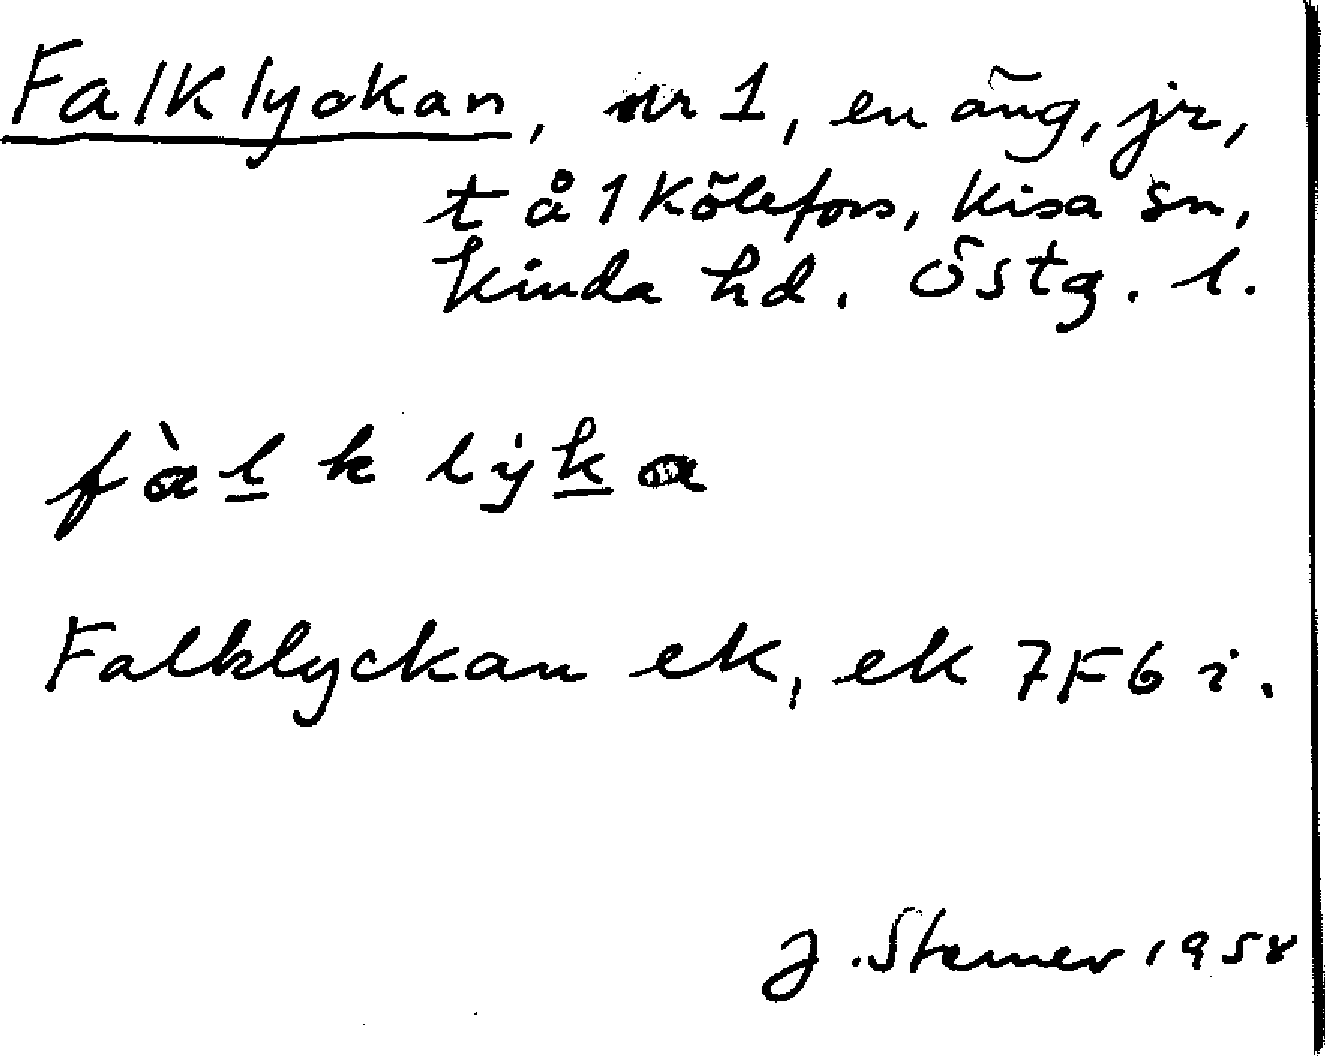 Falklyckan, nr 1, en äng, jr,
t å 1 Kölefors, Kisa sn,
Kinda hd. Östg. l.
fàl̲k lẏk̲a
Falklyckan ek, ek 7F6 i.
J. Stemer 1958